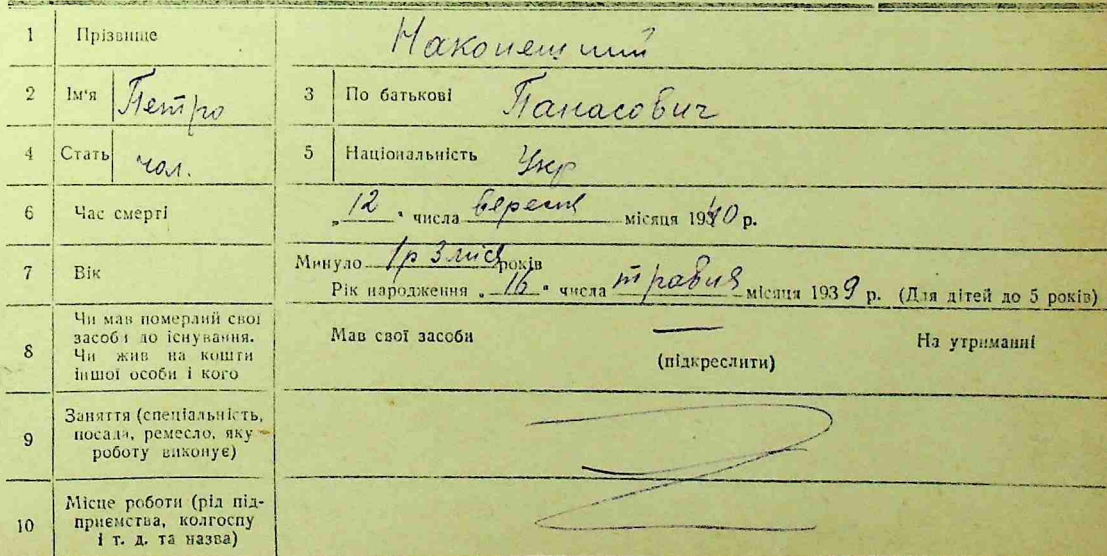 1 Прізвище Наконешний
2 Ім'я Петро 3 По батькові Панасович
4 Стать чол. 5 Національність Укр
6 Час смерті „ 12 " числа вересня місяця 1940 р.
7 Вік Минуло 1р 3 міс років
Рік народження „ 16 " числа травня місяця 1939 р. (Для дітей до 5 років)
8 Чи мав померлий свої
засоби до існування.
Чи жив на кошти
іншої особи і кого
Мав свої засоби — На утриманні
(підкреслити)
9 Заняття (спеціальність,
посада, ремесло, яку
роботу виконує)
10 Місце роботи (рід під-
приємства, колгоспу
і т. д. та назва)